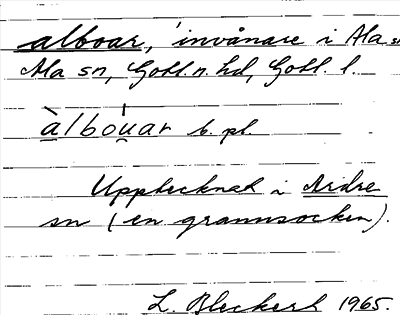 alboar, invånare i Ala sn
Ala sn, Gotl. n. hd, Gotl. l.
àlboúar b. pl.
Upptecknat i Ardre
sn (en grannsocken).
L. Bleckert 1965.